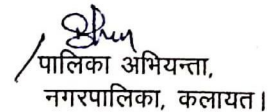 पालिका अभियन्ता,
नगरपालिका, कलायत।